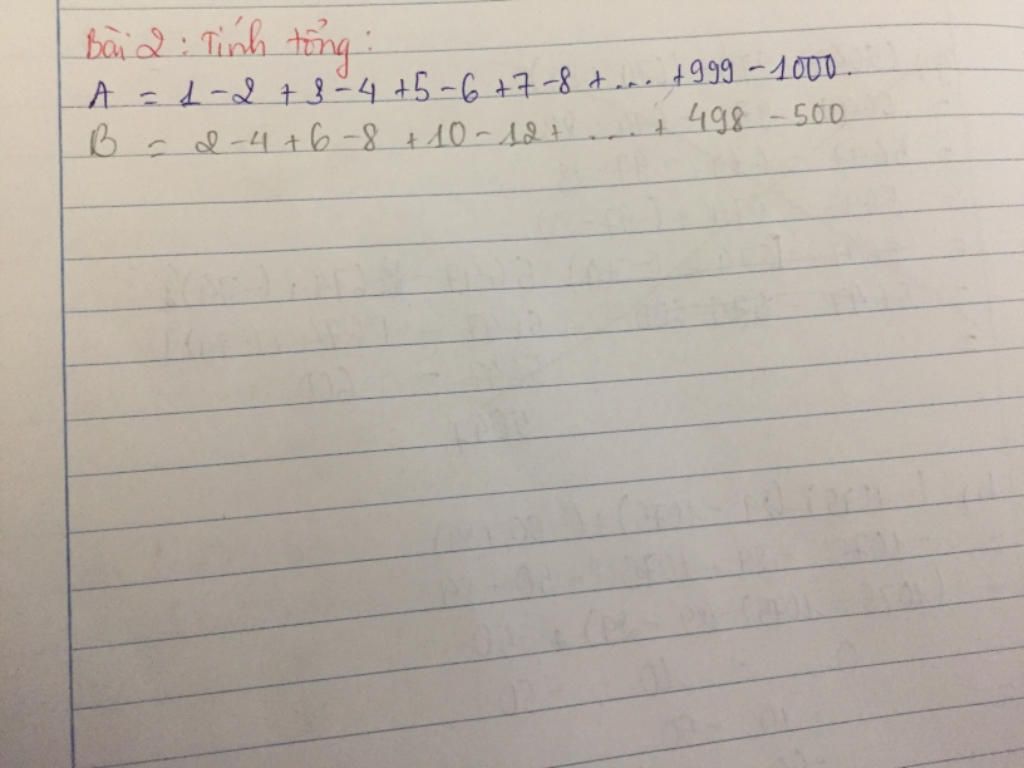 Bài 2: Tính tổng:
A = 1-2 + 3-4 +5-6 +7-8 +... +999-1000.
B = 2-4+6-8 +10-12+ ....+ 498-500